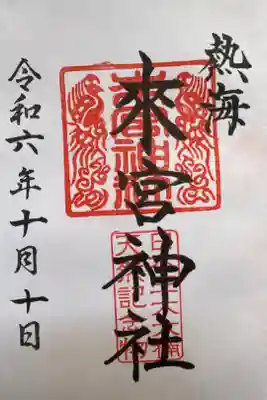 熱海
來宮神社
令和六年十月十日